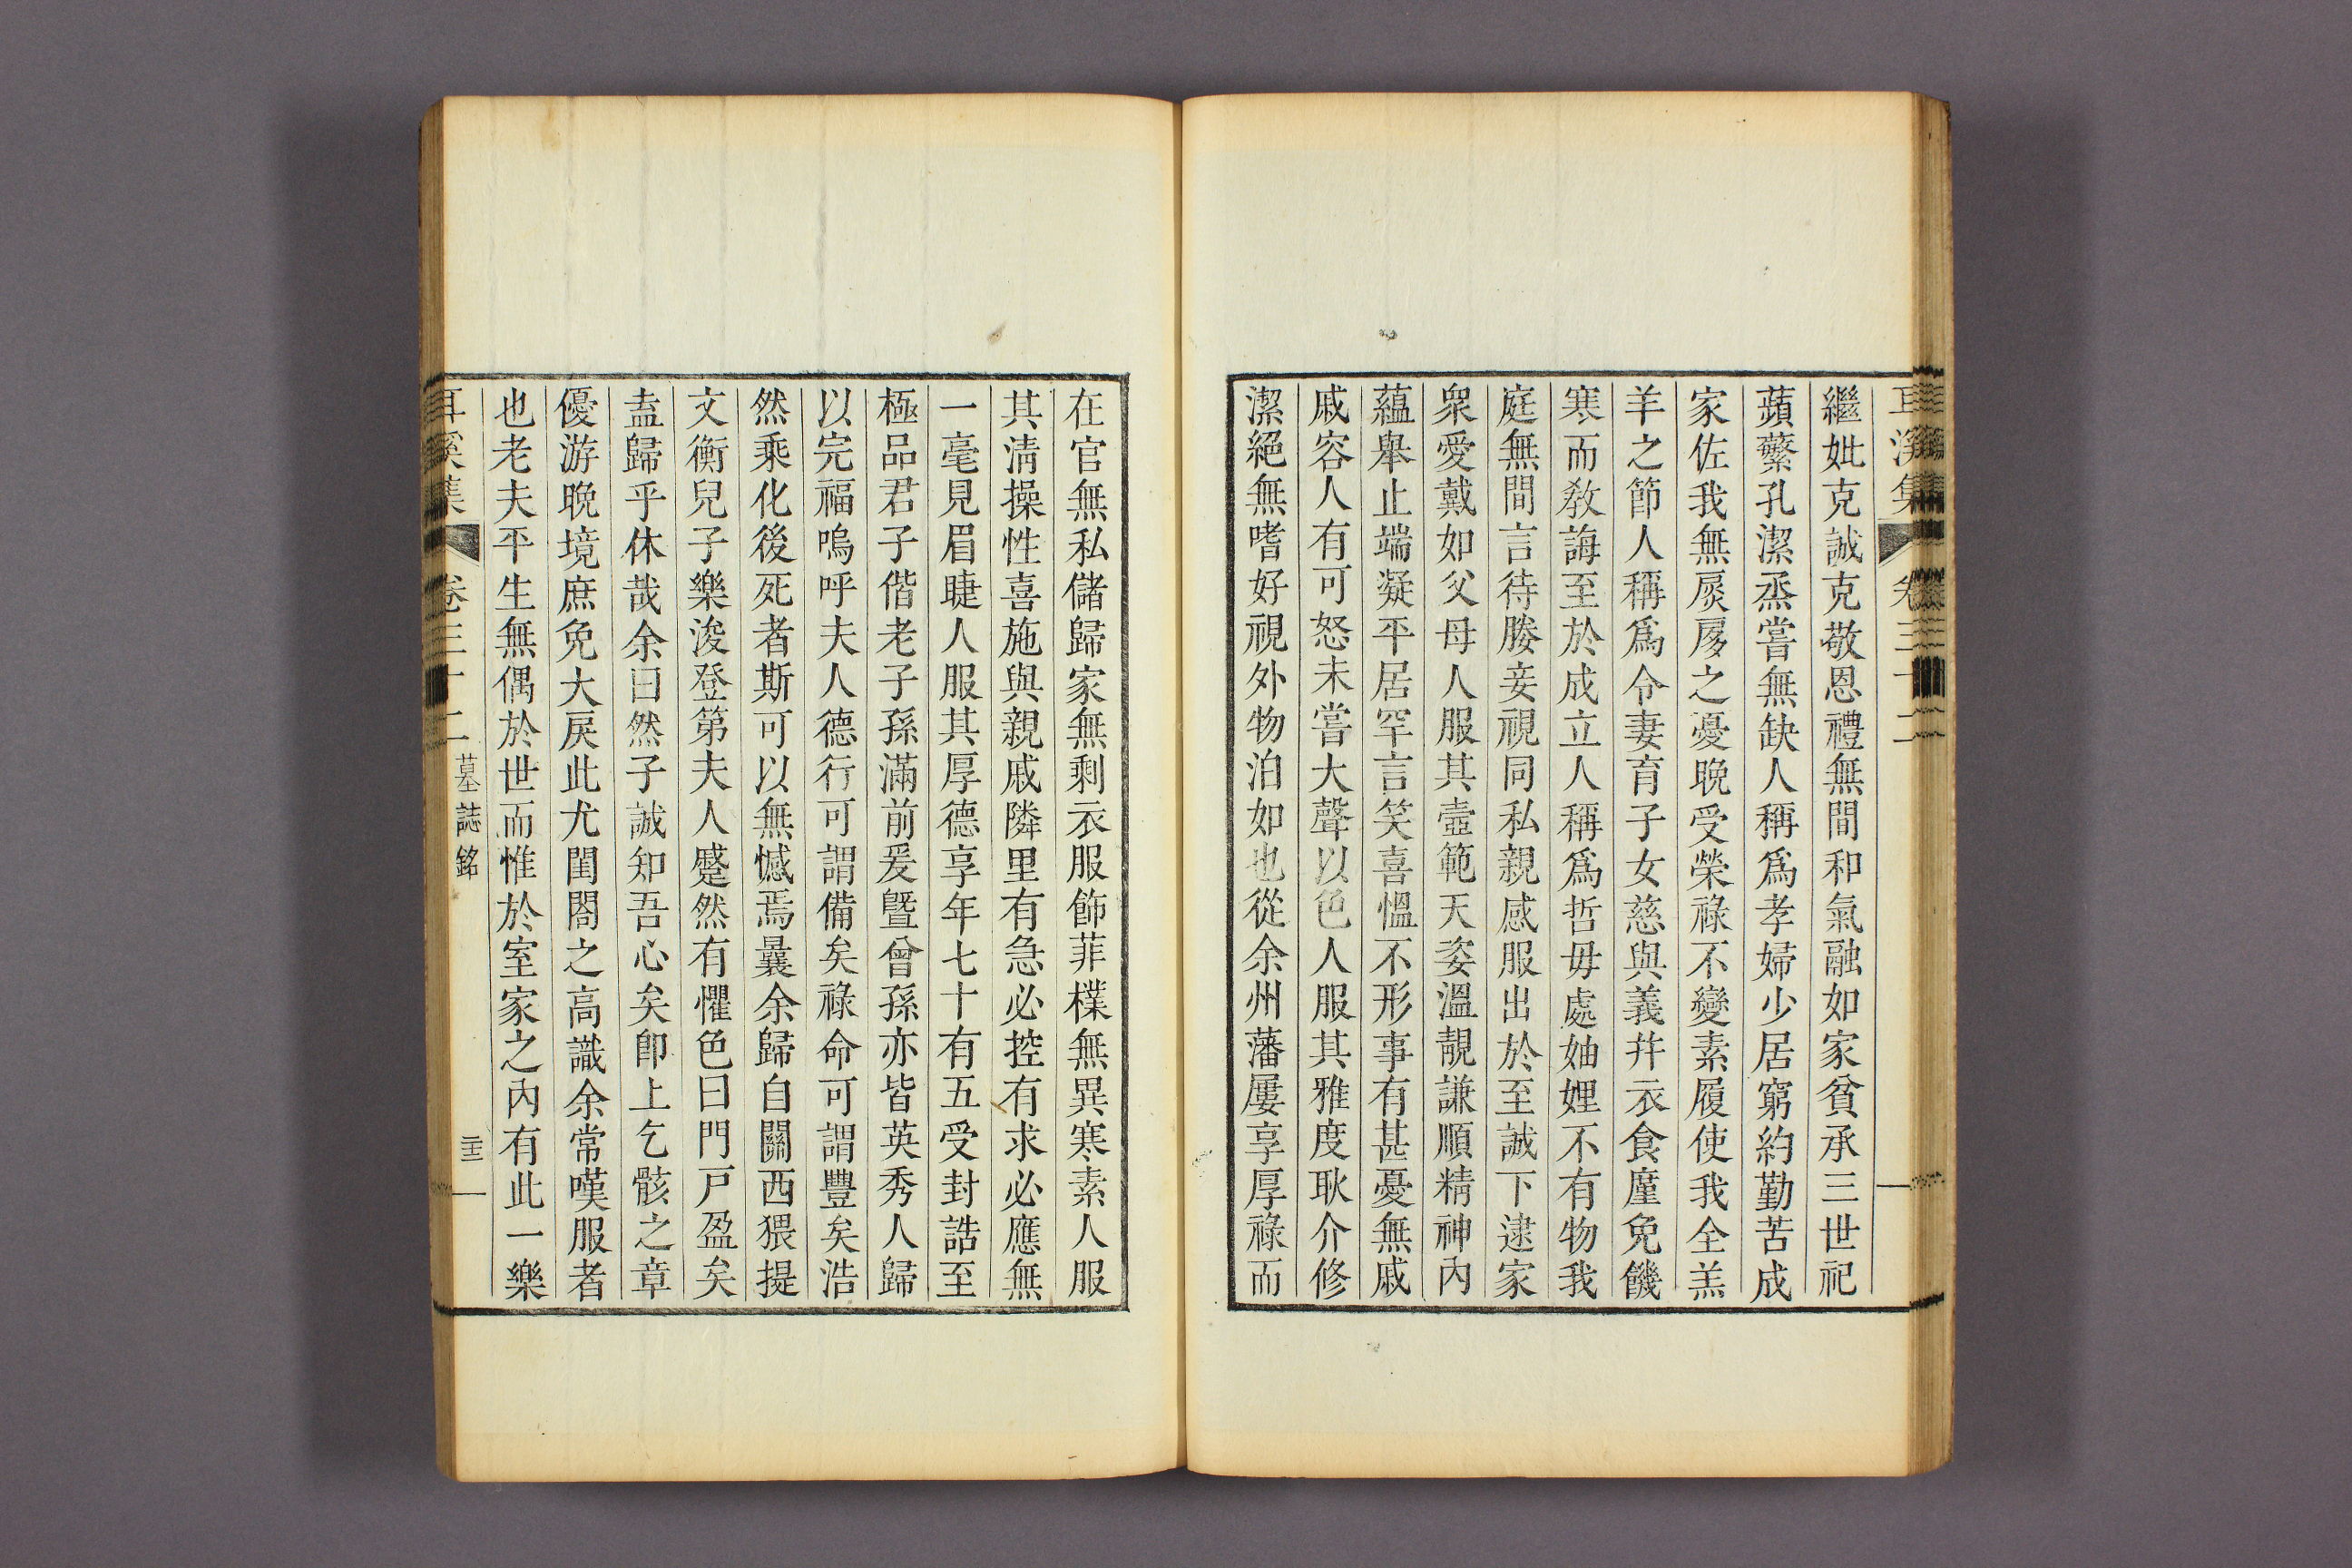 繼妣克誠克敬恩禮無間和氣融如家貧承三世祀
蘋蘩孔潔烝嘗無缺人稱爲孝婦少居窮約勤苦成
家佐我無扊扅之憂晩受榮祿不變素履使我全羔
羊之節人稱爲令妻育子女慈與義幷衣食廑免饑
寒而敎誨至於成立人稱爲哲毋處妯娌不有物我
庭無間言待媵妾視同私親感服出於至誠下逮家
衆愛戴如父母人服其壼範天姿溫靚謙順精神內
蘊舉止端凝平居罕言笑喜慍不形事有甚憂無戚
戚容人有可怒未嘗大聲以色人服其雅度耿介修
潔絕無嗜好視外物泊如也從余州藩屢享厚祿而
在官無私儲歸家無剩衣服飾菲樸無異寒素人服
其淸操性喜施與親戚隣里有急必控有求必應無
一毫見眉睫人服其厚德享年七十有五受封誥至
極品君子偕老子孫滿前爰曁曾孫亦皆英秀人歸
以完福嗚呼夫人德行可謂備矣祿命可謂豐矣浩
然乘化後死者斯可以無憾焉曩余歸自關西猥提
文衡兒子樂浚登第夫人蹙然有懼色曰門戶盈矣
盍歸乎休哉余曰然子誠知吾心矣卽上乞骸之章
優游晩境庶免大戾此尤閨閤之高識余常嘆服者
也老夫平生無偶於世而惟於室家之內有此一樂
耳溪集 卷三十二 墓誌銘